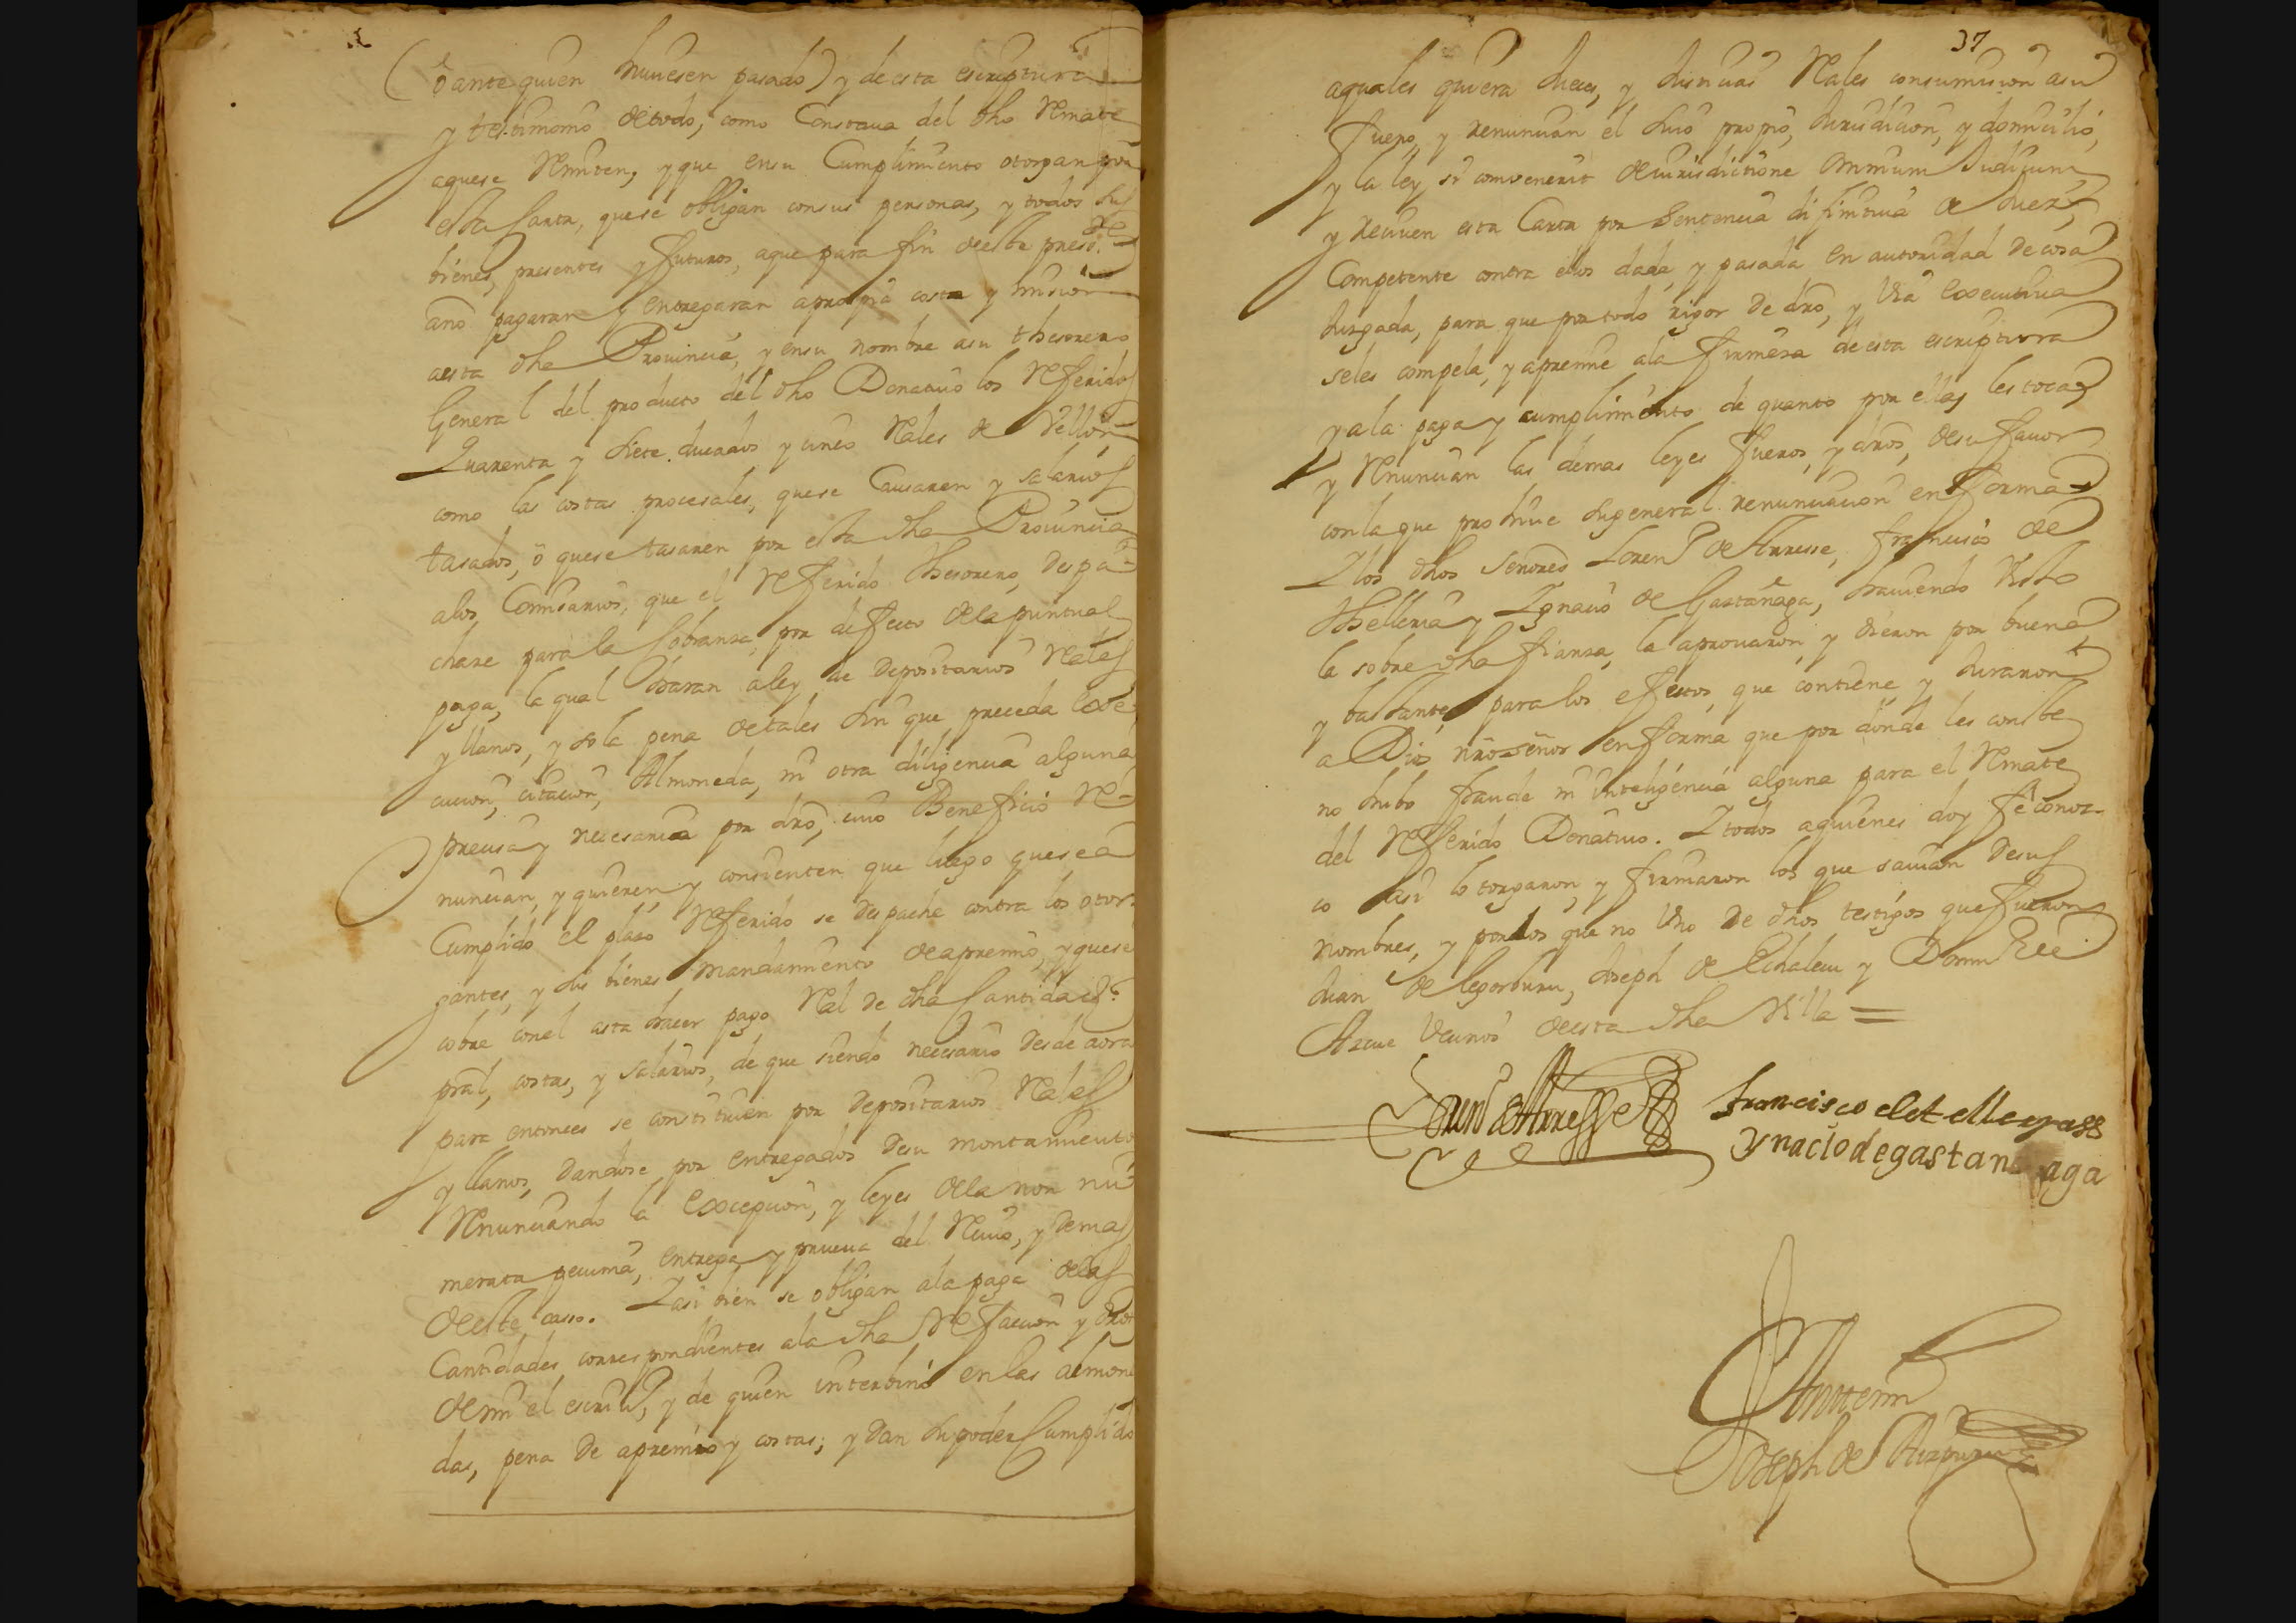 (ô ante quien huuiesen pasado) y de esta escriptura
y testimonio de todo, como Constaua del dho Remate
aque se Remiten, y que en su Cumplimiento otorgan por
esta Carta, que se obligan con sus personas, y todos sus
bienes, presentes y futuros, a que para fin de este press.te
año pagaran y entregaran a propia costa y mision
a esta dha Prouincia, y en su nombre a su thesorero
General del producto del dho Donatiuo los Referidos
Quarenta y siete ducados y cinco Reales de Vellon
como las costas procesales, que se Causaren y salarios
tasados, ô que se tasaren por esta dha Prouincia
a los Comisarios, que el Referido thesorero, despa-
chare para la Cobranza, por defecto de la puntual
paga, la qual haran a ley de depositarios Reales
y llanos, y so la pena de tales sin que preceda exe-
cucion, citacion, Almoneda, ni otra diligencia alguna
precisa y necesaria por dro, cuio Beneficio Re-
nuncian, y quieren, y consienten que luego que sea
Cumplido el plazo Referido se despache contra los otor-
gantes, y sus bienes mandamiento de apremio, y que se
cobre con el asta hacer pago Real de dha Cantidad
pral, costas, y salarios, de que siendo necesario desde aora
para entonces se constituien por depositarios Reales
y llanos, dandose por entregados de su montamiento
Renunciando la excepcion, y leyes de la non nu-
merata pecunia, entrega y prueua del Reciuo, y demas
de este caso. Y asi bien se obligan a la paga de las
Cantidades correspondientes a la dha Refaccion y dros
de mi el escriu.º, y de quien interbino en las almone
das, pena de apremio y costas; y dan su poder Cumplido
37
a quales quiera Jueces, y Justicias Reales con sumision a su
fuero, y renuncian el suio propio, Jurisdicion, y domicilio,
y la ley si convenerit de iurisdictione omnium Judicum
y reciuen esta Carta por Sentencia difinitiua de Juez
Competente contra ellos dada, y pasada en autoridad de cosa
Juzgada, para que por todo rigor de dro, y via executiua
se les compela, y apremie a la firmeza de esta escriptura
y a la paga y cumplimiento de quanto por ella les toca
y Renuncian las demas leyes fueros, y dros, de su fauor
con la que prohiue su general renunciacion en forma
Y los dhos Señores Loren.º de Arresse, francisco de
thelleria y Ygnacio de Gastañaga, hauiendo visto
la sobre dha fianza, la aprouaron, y dieron por buena
y bastante, para los efectos, que contiene, y Juraron
a Dios nro señor en forma que por donde les conste
no hubo fraude ni inteligencia alguna para el Remate
del Referido Donatiuo. Y todos a quienes doy fê conoz-
co asi lo torgaron, y firmaron los que sauian de sus
nombres, y por los que no Uno de dhos testigos que fueron
Juan de legorburu, Joseph de Echaleu y Domin
Azcue Vecinos de esta dha Villa =
Loren.º de Arresse
francisco de telleria
Ynacio de gastan aga
Ante mi
Joseph de Aizpuru